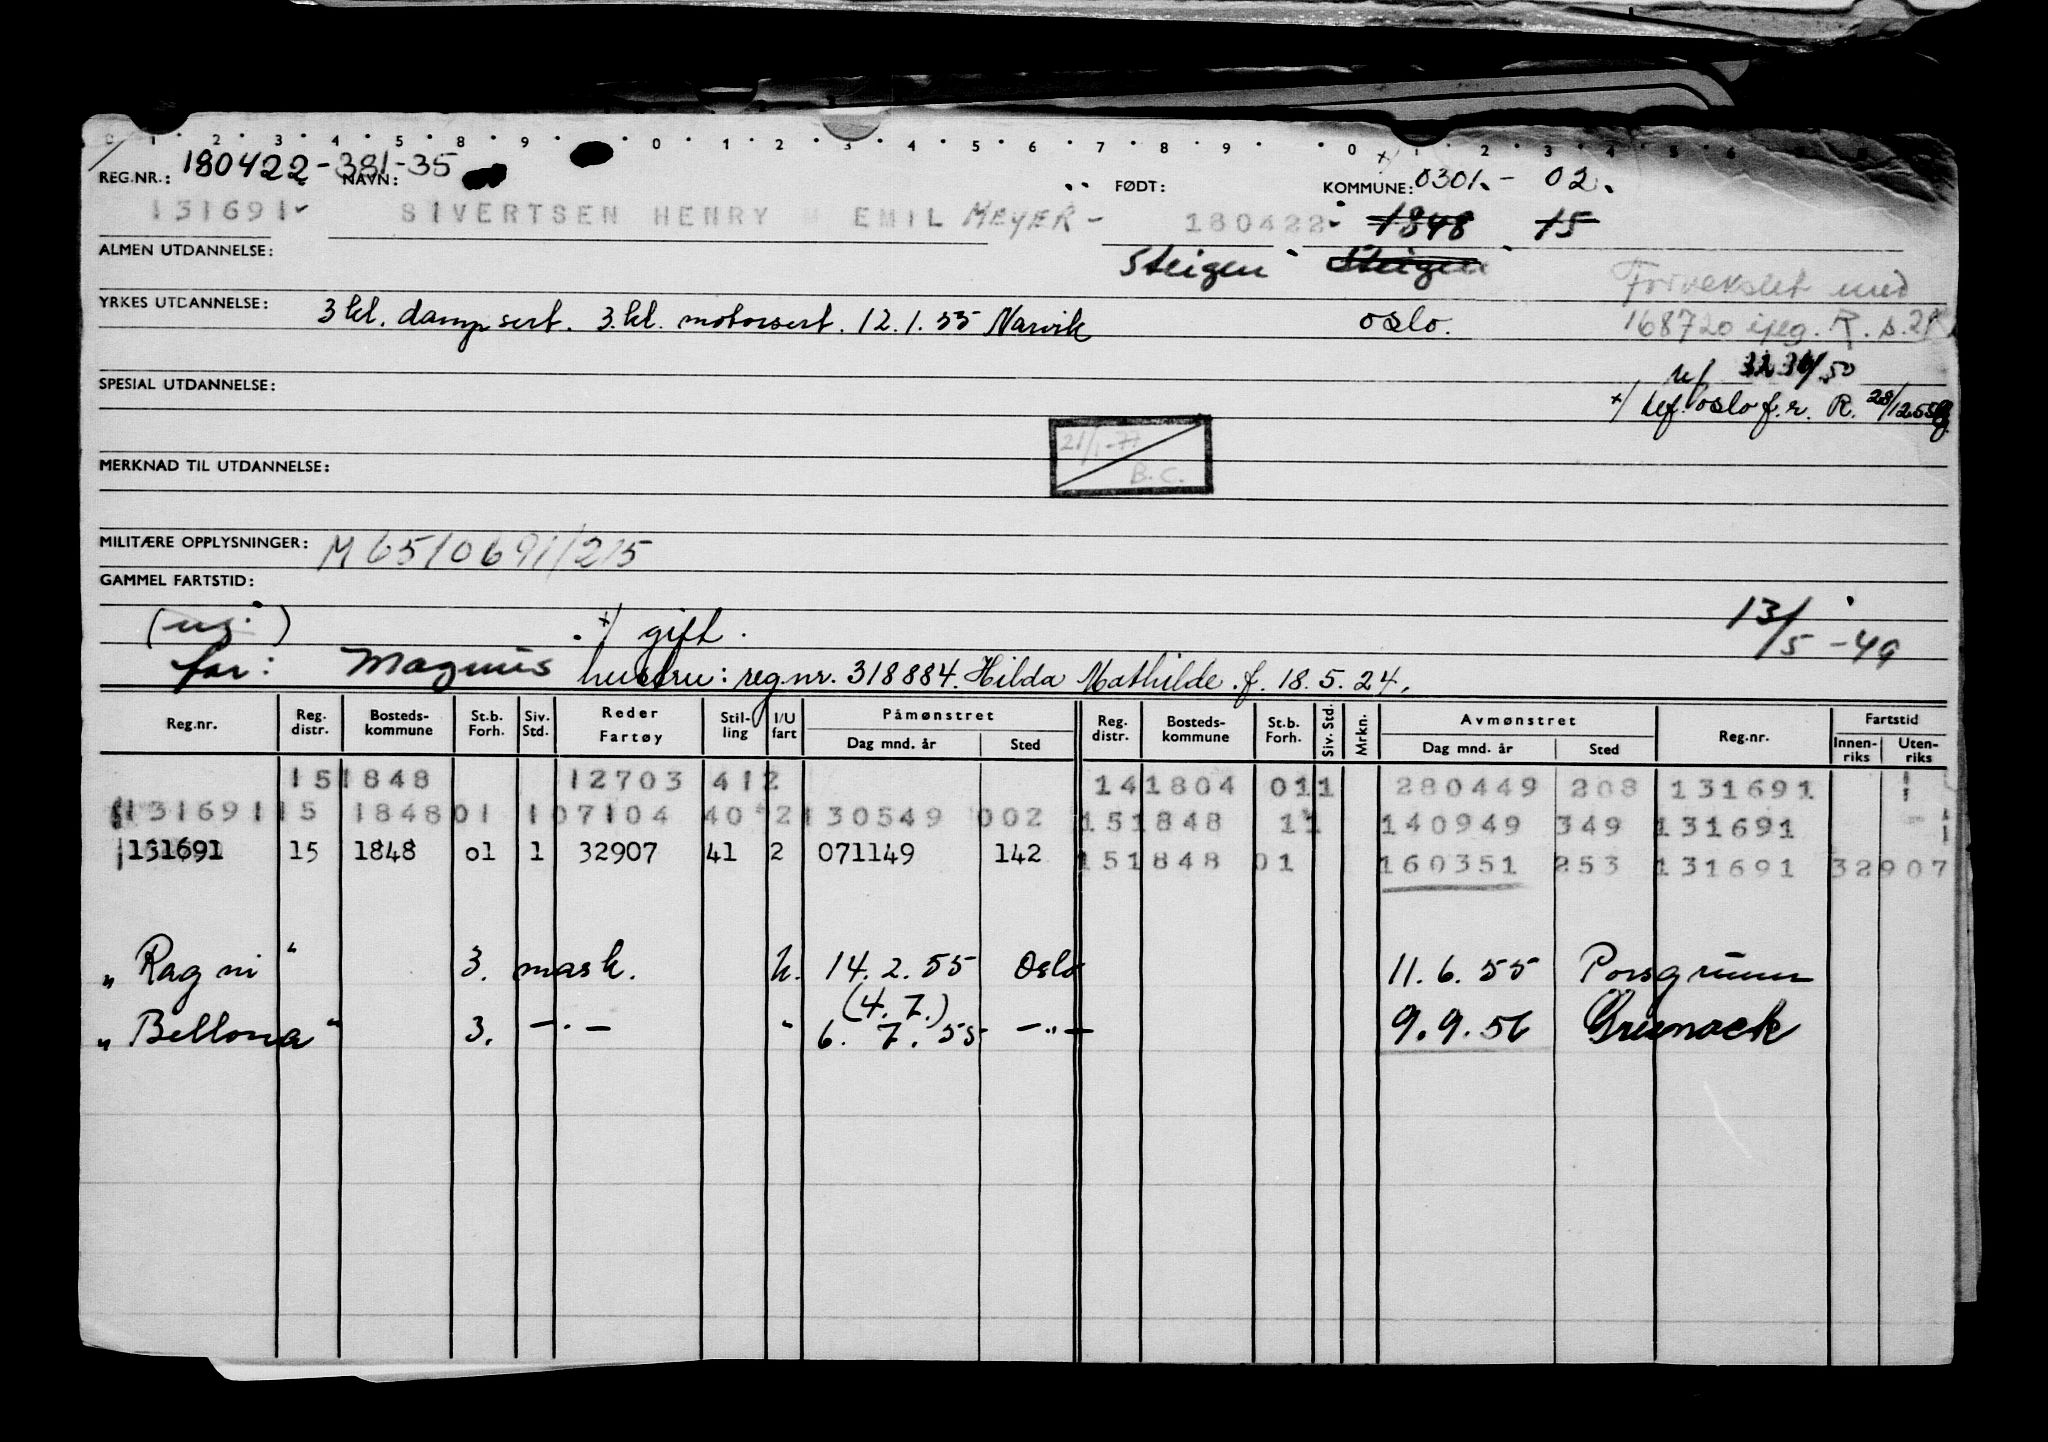 0 1 2 3 4 5 8 9 0 1 2 3 4 5 6 7 8 9 0 1 2 3 4 5 6
REG.NR.: 180422-381-35 NAVN: FØDT: KOMMUNE: 0301.- 02.
131691 SIVERTSEN HENRY M EMIL MEYER - 180422 1848 15
ALMEN UTDANNELSE: Steigen Steigen
Forvekslet med
YRKES UTDANNELSE: 3 kl. damp sert. 3. kl. motorsert. 12.1.55 Narvik oslo. 168720 i jeg. R. s.
50
SPESIAL UTDANNELSE: x/ utf. oslo f. r. R. 28/12 55
21/1-77
MERKNAD TIL UTDANNELSE: B.C.
MILITÆRE OPPLYSNINGER: M 6510691/215
GAMMEL FARTSTID:
(ug.) x/ gift. 13/5-49
far: Magnus hustru: reg.nr. 318884. Hilda Mathilde. f. 18.5.24.
Reg.nr. Reg. distr. Bosteds-kommune St.b. Forh. Siv. Std. Reder Fartøy Stil-ling I/U fart Påmønstret Dag mnd. år Sted Reg. distr. Bosteds-kommune St.b. Forh. Siv. Std. Mrkn. Avmønstret Dag mnd. år Sted Reg.nr. Fartstid Innen-riks Uten-riks
151848 12703 412 141804 011 280449 208 131691
131691 15 1848 01 107104 40 2 130549 002 151848 11 140949 349 131691
131691 15 1848 01 1 32907 41 2 071149 142 151848 01 160351 253 131691 32907
„ Ragni " 3. mask. U. 14.2.55 Oslo 11.6.55 Porsgrunn
(4.7.)
„ Bellona " 3. -.- " 6.7.55 -"- 9.9.56 Greenock